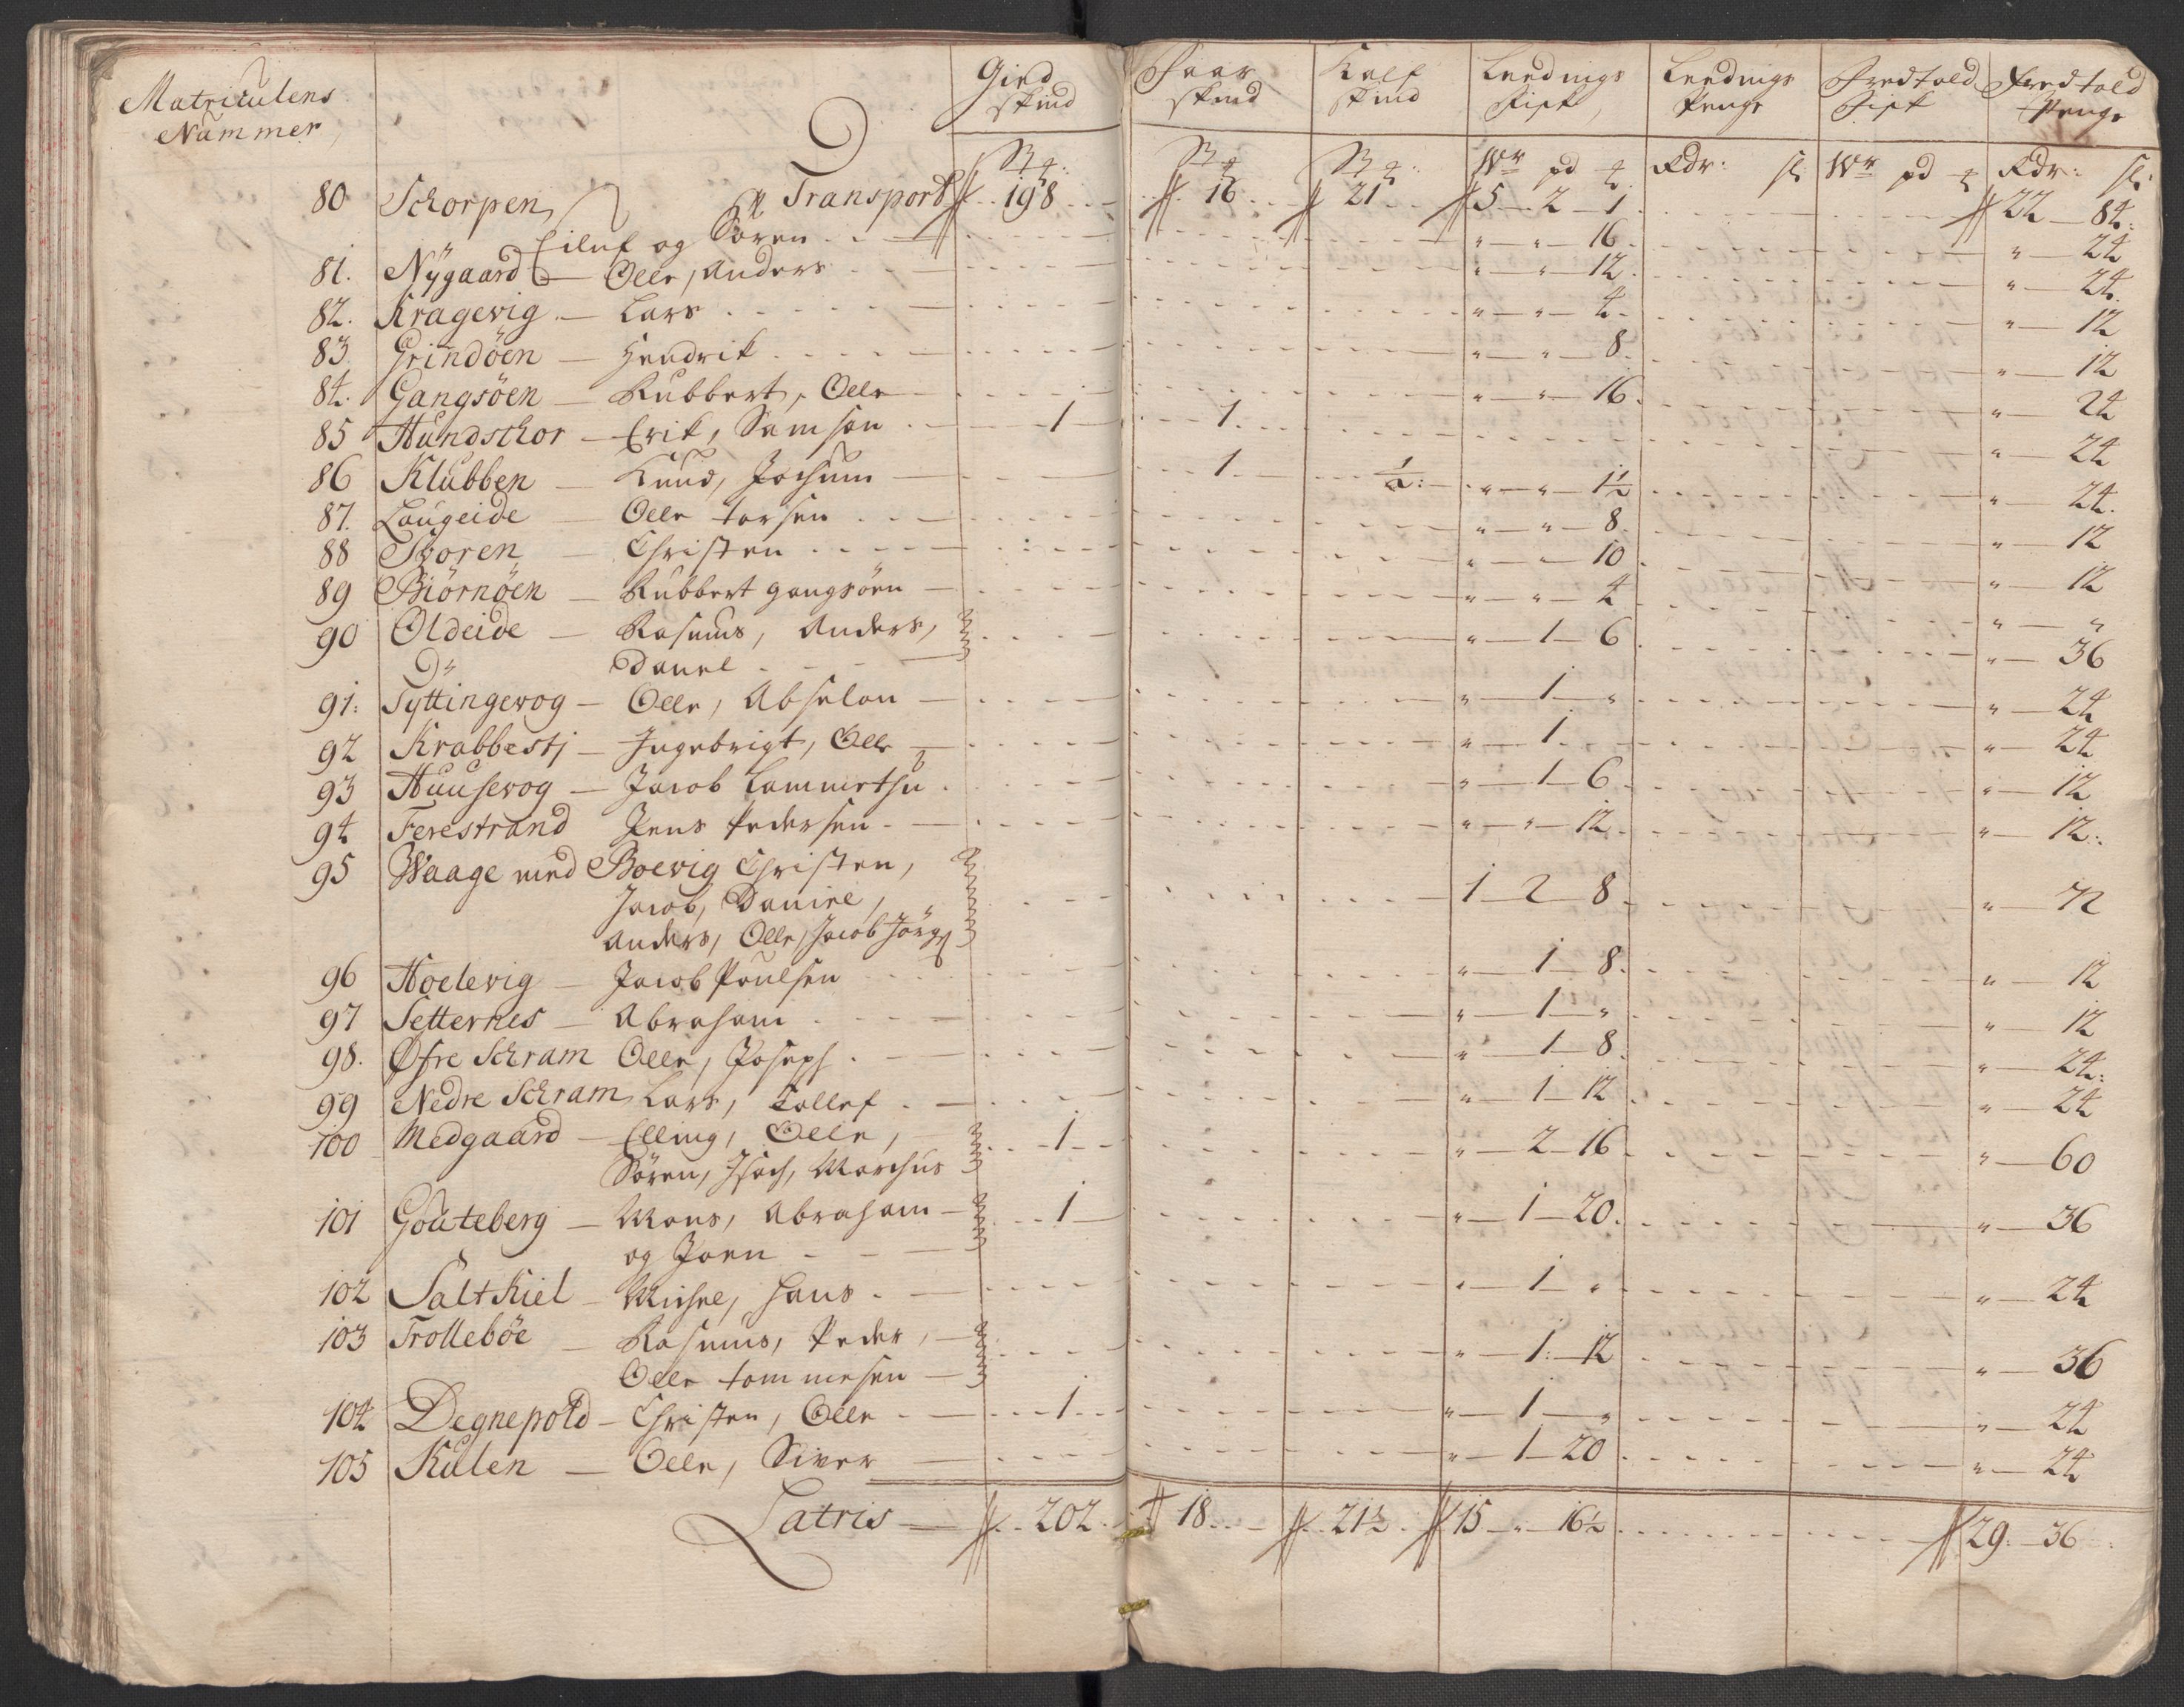 Matriculens Nummer Gied skind Faar skind Kalf skind Leedings Fisk Leedings Penge Fredtold Fisk Fredtold Penge
Wr pd Rdr: sk: Wr pd Rdr: sk:
Transport 198 16 21 5 2 1 22 84:
80 Schorpen Eiluf og Sören „ „ 16 „ 24
81. Nÿgaard Olle, Anders „ „ 12 „ 24
82. Kragevig Lars „ „ 4 „ 12
83 Grindöen Hendrik „ „ 8 „ 12
84. Gangsöen Rubbert, Olle „ „ 16 „ 24
85 Hundskor Erik, Samson 1 1 „ 24
86 Klubben Knud, Jochum 1 ½ „ „ 1½ „ 24
87. Laugeide Olle Torsen „ „ 8 „ 12
88 Storen Christen „ „ 10 „ 12
89 Biörnöen Rubbert Gangsöen „ „ 4 „ „
90 Oldeide Rasmus, Anders, „ 1 6 „ 36
Do Danel
91: Tyttingevog Olle, Abselon „ 1 „ „ 24
92 Krabbestj Ingebrigt, Olle „ 1 „ 24
93 Huusevog Jacob Lammetsn „ 1 6 „ 12
94 Ferestrand Jens Pedersen „ „ 12 „ 12
95 Waage med Boevig Christen, 1 2 8 „ 72
Jacob, Daniel,
Anders, Olle, Jacob Jörg
96 Hoelevig Jacob Poulsen „ 1 8 „ 12
97 Setternes Abraham „ 1 „ „ 12
98. Øfre Schram Olle, Joseph „ 1 8 „ 24
99 Nedre Schram Lars, Tollef „ 1 12 „ 24
100 Medgaard Elling, Olle, 1 „ 2 16 „ 60
Sören, Isach, Marchus
101 Gouteberg Mons, Abraham 1 „ 1 20 „ 36
og Joen
102 SaltKiel Michel, Hans „ 1 „ „ 24
103 Trolleböe Rasmus, Peder, „ 1 12 „ 36
Olle Tommesen
104 Degnepold Christen, Olle 1 „ 1 „ „ 24
105 Kulen Olle, Siver „ 1 20 „ 24
Latris 202 18 21½ 15 „ 16½ 29 36